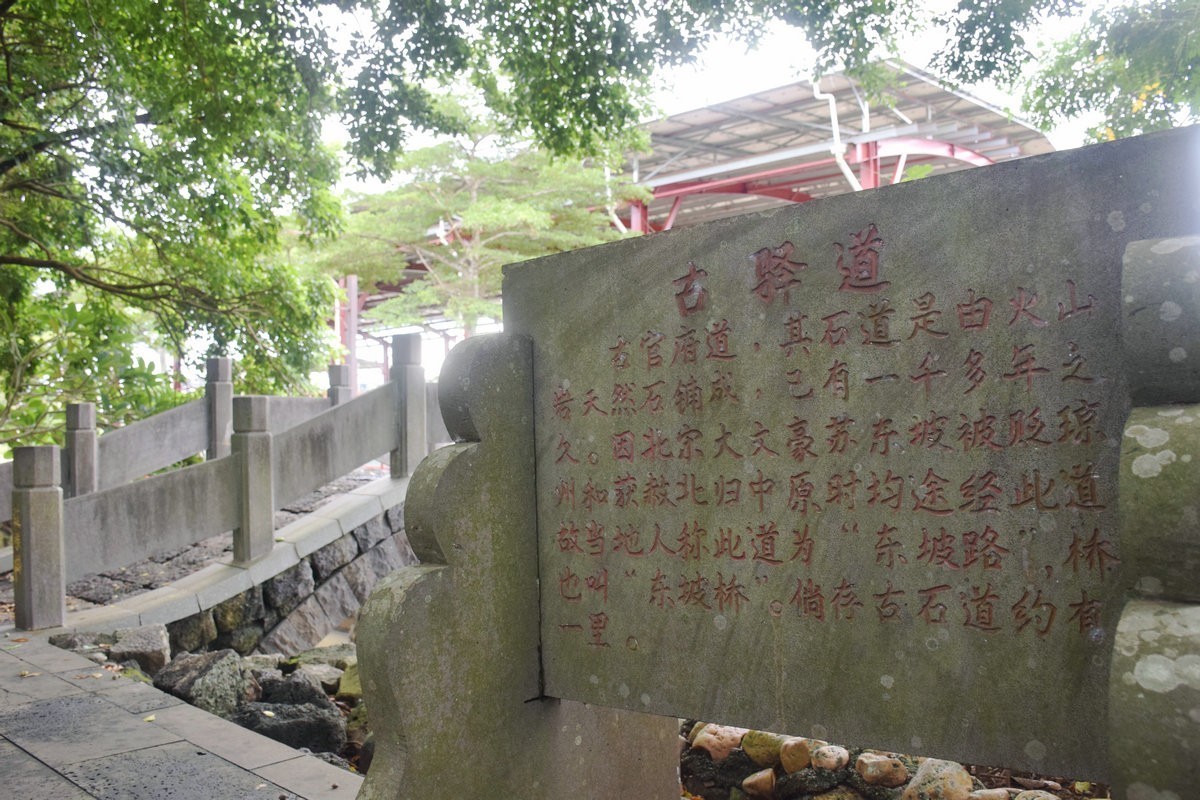 古驿道
古官府道，其石道是由火山
岩天然石铺成，已有一千多年之
久。因北宋大文豪苏东坡被贬琼
州和获赦北归中原时均途经此道
故当地人称此道为“东坡路”，桥
也叫“东坡桥”。倘存古石道约有
一里。